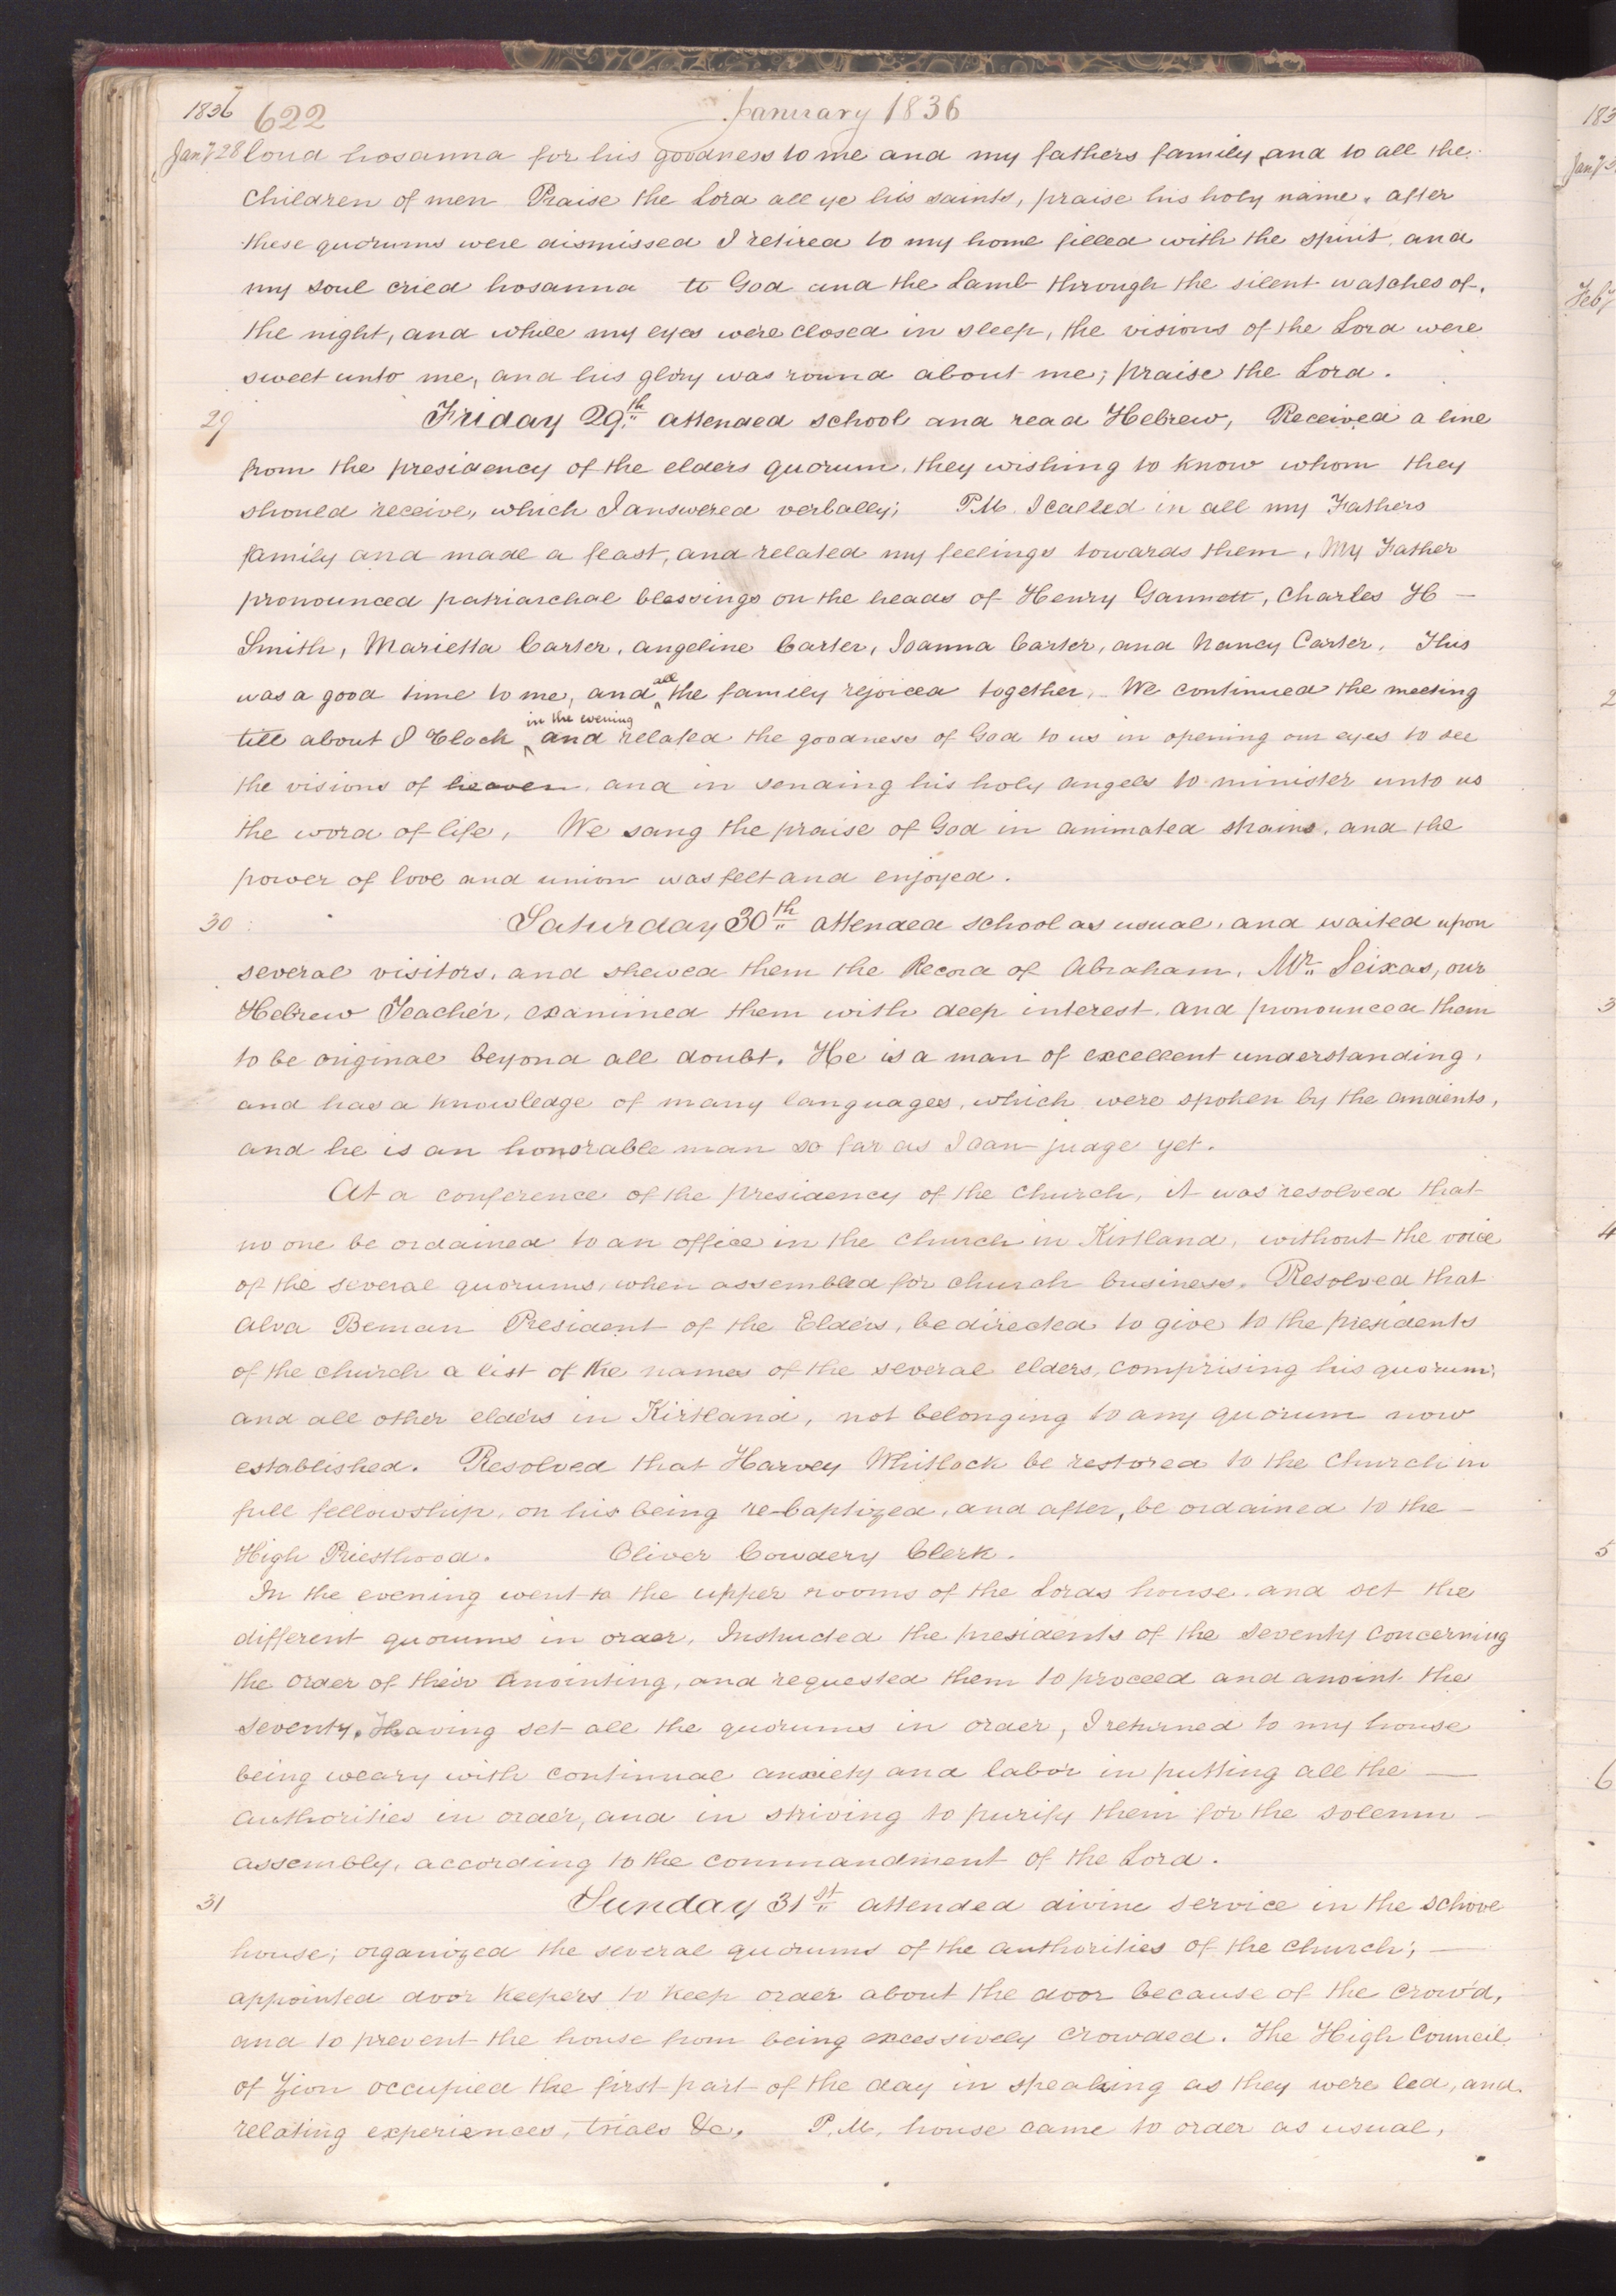 1836 622 January 1836
Jany 28 loud hosanna for his goodness to me and my fathers family, and to all the
children of men Praise the Lord all ye his saints, praise his holy name. after
these quorums were dismissed I retired to my home filled with the spirit, and
my soul cried hosanna to God and the Lamb through the silent watches of
the night, and while my eyes were closed in sleep, the visions of the Lord were
sweet unto me, and his glory was round about me; praise the Lord.
29 Friday 29th attended school and read Hebrew, Received a line
from the presidency of the elders quorum, they wishing to know whom they
should receive, which I answered verbally; P.M. I called in all my Fathers
family and made a feast, and related my feelings towards them, My Father
pronounced patriarchal blessings on the heads of Henry Gannett, Charles H —
Smith, Marietta Carter, angeline Carter, Joanna Carter, and Nancy Carter. This
was a good time to me, and all the family rejoiced together, We continued the meeting
till about 8 Clock in the evening and related the goodness of God to us in opening our eyes to see
the visions of heaven, and in sending his holy angels to minister unto us
the word of life, We sang the praise of God in animated strains, and the
power of love and union was felt and enjoyed.
30 Saturday 30th attended school as usual, and waited upon
several visitors, and shewed them the Record of Abraham, Mr. Seixas, our
Hebrew Teacher, examined them with deep interest, and pronounced them
to be original beyond all doubt. He is a man of excellent understanding,
and has a knowledge of many languages, which were spoken by the ancients,
and he is an honorable man so far as I can judge yet.
At a conference of the presidency of the church, it was resolved that
no one be ordained to an office in the church in Kirtland, without the voice
of the several quorums, when assembled for church business. Resolved that
Alva Beman President of the Elders, be directed to give to the presidents
of the church a list of the names of the several elders, comprising his quorum;
and all other elders in Kirtland, not belonging to any quorum now
established. Resolved that Harvey Whitlock be restored to the Church in
full fellowship, on his being re-baptized, and after, be ordained to the —
High Priesthood. Oliver Cowdery Clerk.
In the evening went to the upper rooms of the Lords house, and set the
different quorums in order, Instructed the presidents of the seventy concerning
the order of their anointing, and requested them to proceed and anoint the
seventy. Having set all the quorums in order, I returned to my house
being weary with continual anxiety and labor in putting all the —
authorities in order, and in striving to purify them for the solemn —
assembly, according to the commandment of the Lord.
31 Sunday 31st attended divine service in the school
house; organized the several quorums of the authorities of the church; —
appointed door keepers to keep order about the door because of the crowd,
and to prevent the house from being excessively crowded. The High Council
of Zion occupied the first part of the day in speaking as they were led, and
relating experiences, trials &c. P.M. house came to order as usual,